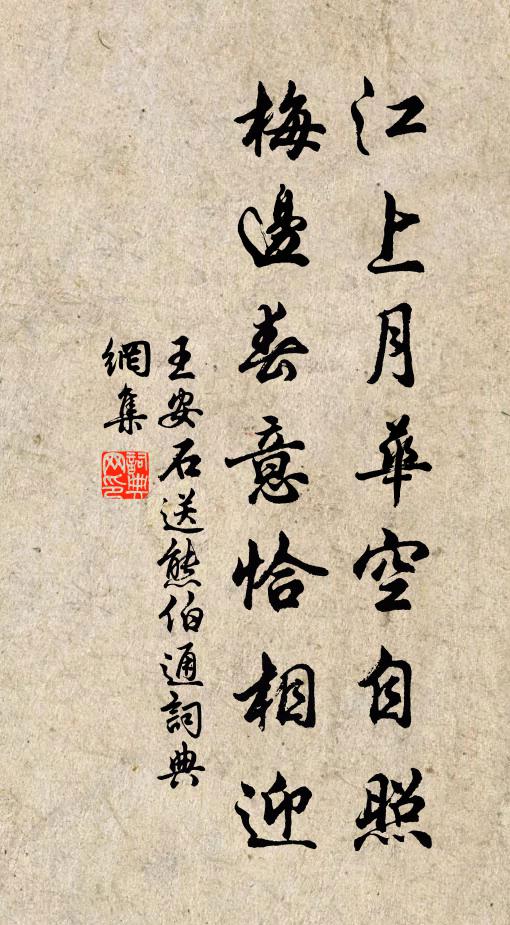 江上月華空自照
梅邊春意恰相迎
王安石送熊伯通詞典
網集
詞典
網印